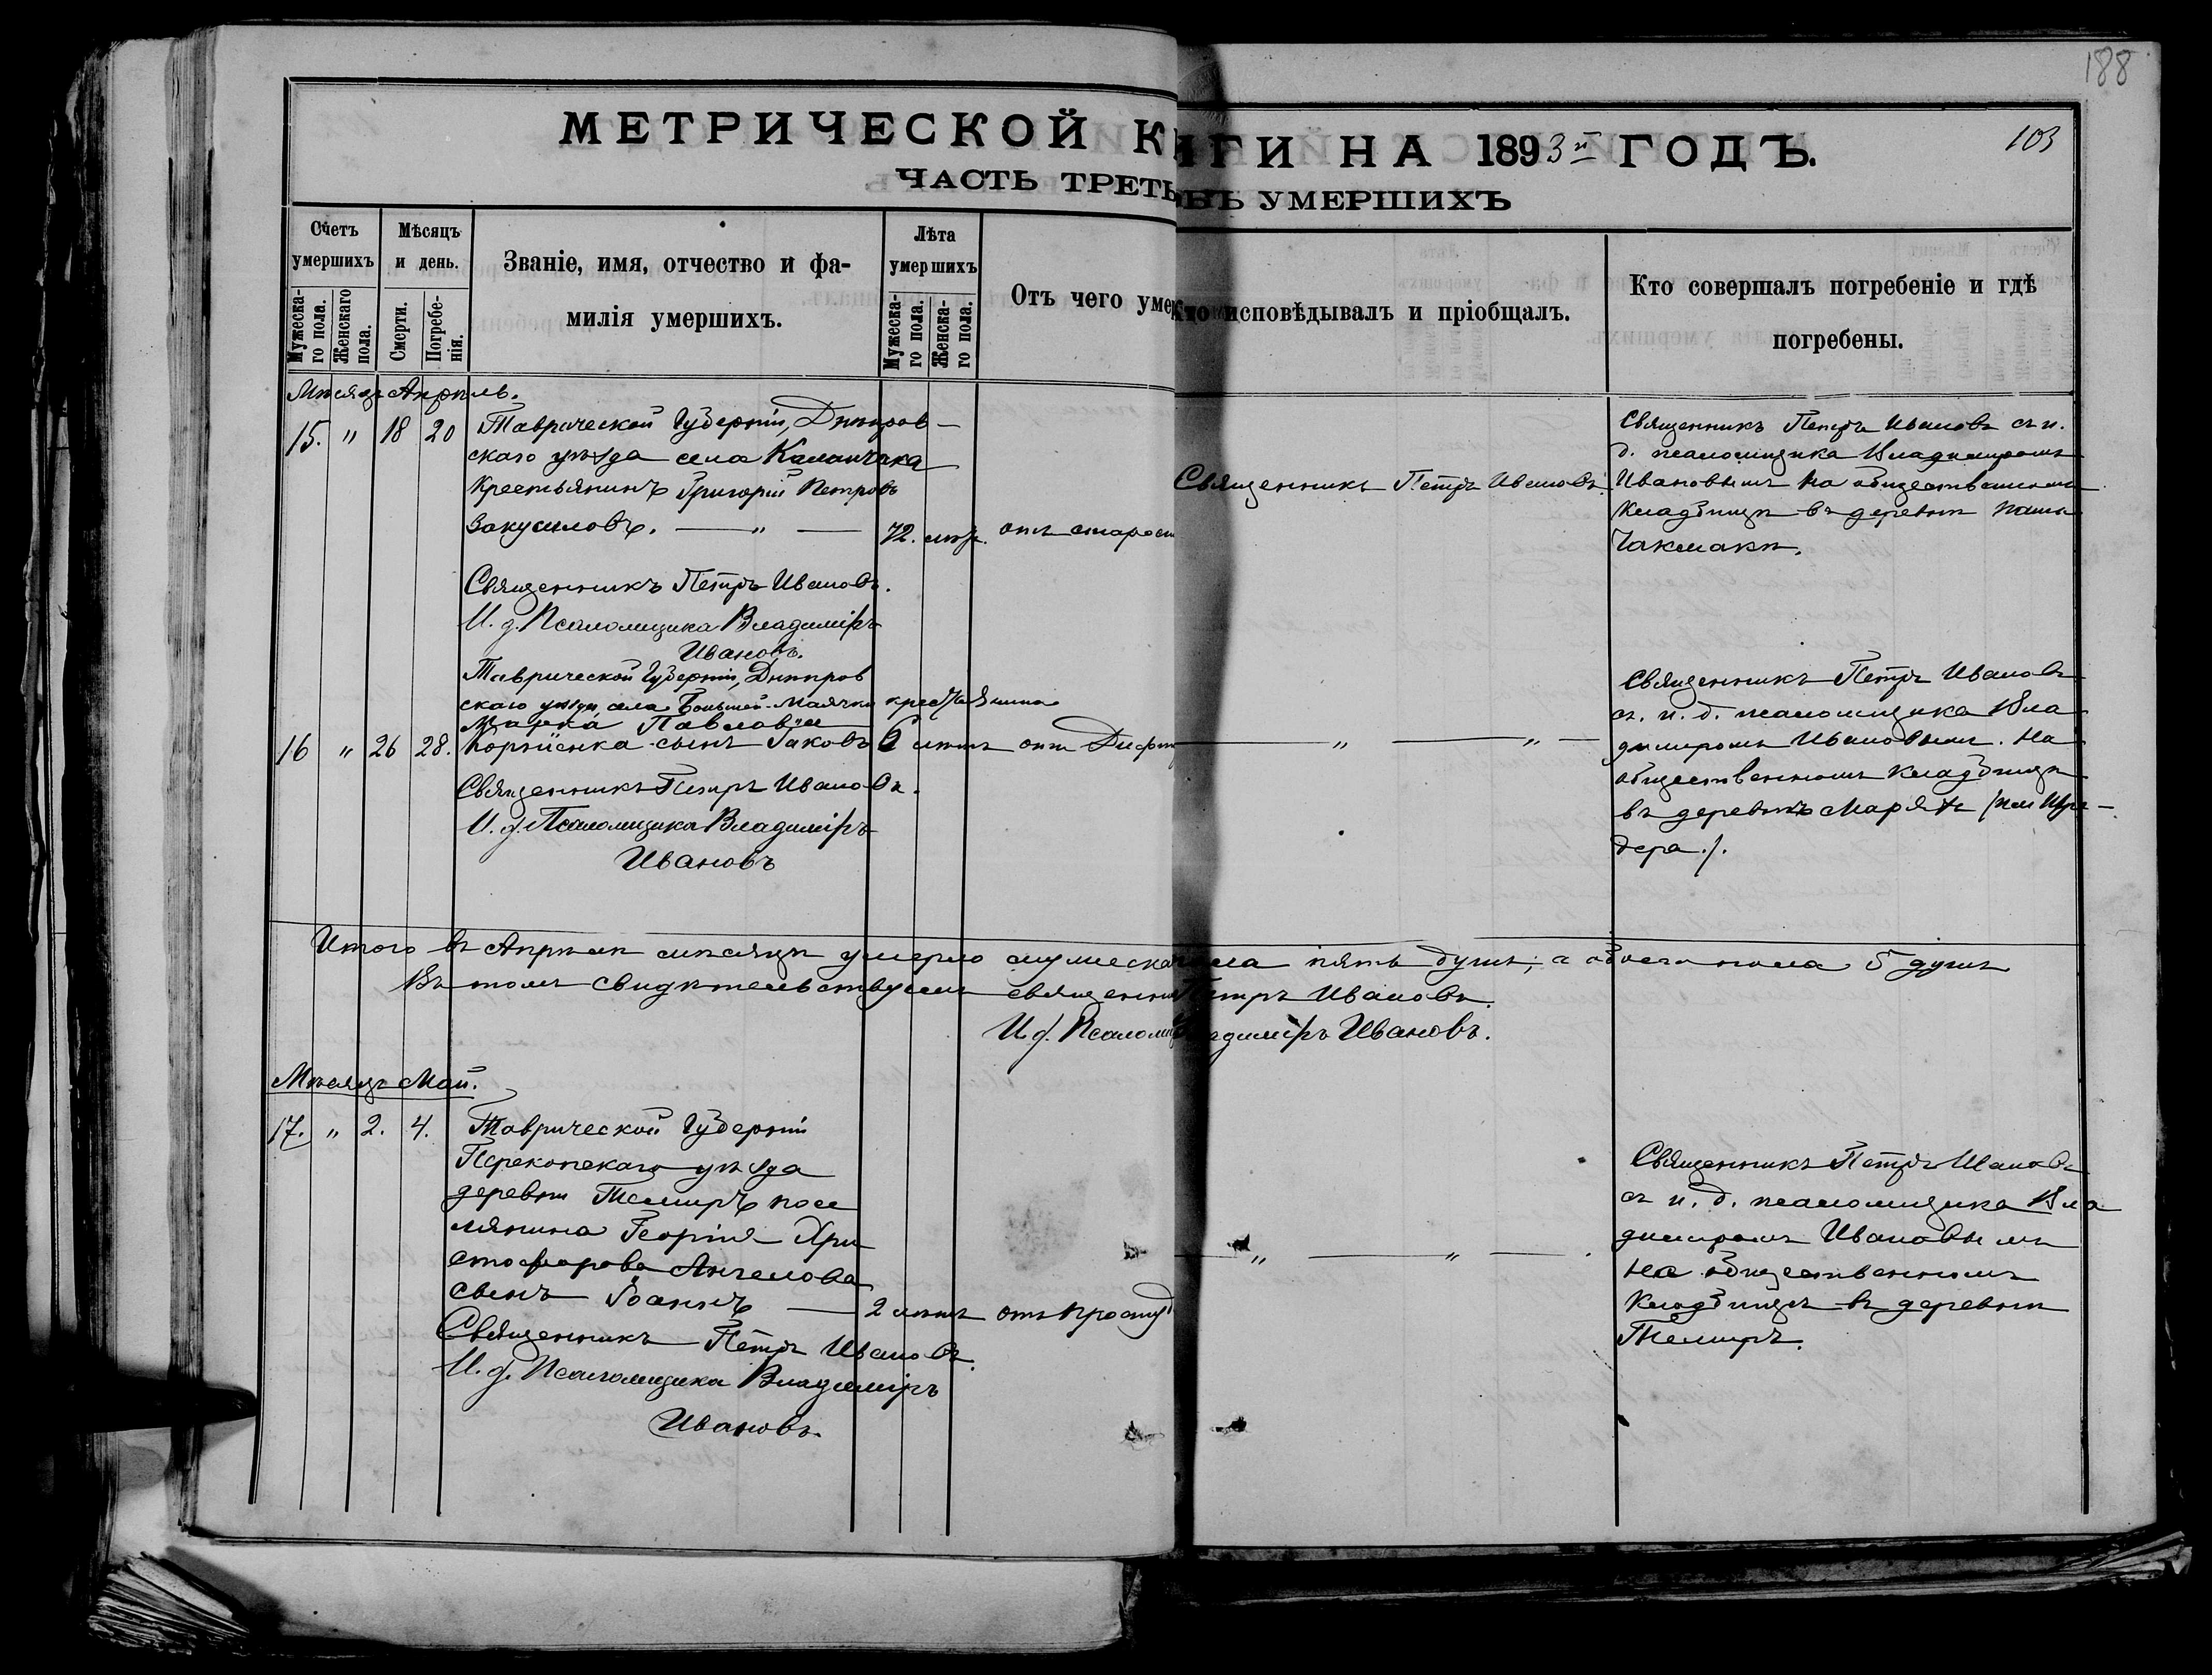 188
МЕТРИЧЕСКОЙ КИГИ НА 1893й ГОДЪ.
103
ЧАСТЬ ТРЕТЬ УМЕРШИХЪ
Счетъ умершихъ
Мѣсяцъ и день.
Званіе, имя, отчество и фа-
милія умершихъ.
Лѣта умершихъ
Отъ чего умер
Кто исповѣдывалъ и пріобщалъ.
Кто совершалъ погребеніе и гдѣ
погребены.
Мужеска-го пола.
Женскаго пола.
Смерти.
Погребе-нія.
Мужеска-го пола.
Женска-го пола.
Мѣсяцъ Апрѣль.
15. " 18 20 Таврической Губерніи, Днѣпров-
скаго уѣзда села Каланчака
Крестьянинъ Григорій Петровъ
Закусиловъ. — " — 72. лѣтъ. отъ старост
Священникъ Петръ Ивановъ.
Священникъ Петръ Ивановъ съ и.
д. псаломщика Владимиромъ
Ивановымъ на общественномъ
Кладбищѣ въ деревнѣ
Чакмакѣ.
Священникъ Петръ Ивановъ.
И. д. Псаломщика Владиміръ
Ивановъ.
Таврической Губерніи, Днѣпров
скаго уѣзда, села Большой-Маячки крестьянина
Марка Павлова
16 " 26 28. сынъ Іаковъ 6 лѣтъ отъ Дифт
— " — " —
Священникъ Петръ Ивановъ
съ. и. д. псаломщика Вла
димиромъ Ивановымъ. На
общественномъ кладбищѣ
въ деревнѣ
Священникъ Петръ Ивановъ.
И. д. Псаломщика Владиміръ
Ивановъ
Итого въ Апрѣлѣ мѣсяцѣ умерло мужеска пола пять душъ; а обоего пола 5 душъ
Въ томъ свидѣтельствуемъ священни Петръ Ивановъ.
И. д. Псаломщ Владиміръ Ивановъ.
Мѣсяцъ Май.
17. " 2. 4. Таврической Губерніи
Перекопскаго уѣзда
деревни Темиръ посе
лянина Георгія Хри
стофорова Ангелова
сынъ Іоаннъ — 2 лѣтъ отъ простуд
— " — " —
Священникъ Петръ Ивановъ
съ и. д. псаломщика Вла
димиромъ Ивановымъ
на общественномъ
Кладбищѣ въ деревнѣ
Темиръ.
Священникъ Петръ Ивановъ.
И. д. Псаломщика Владиміръ
Ивановъ.